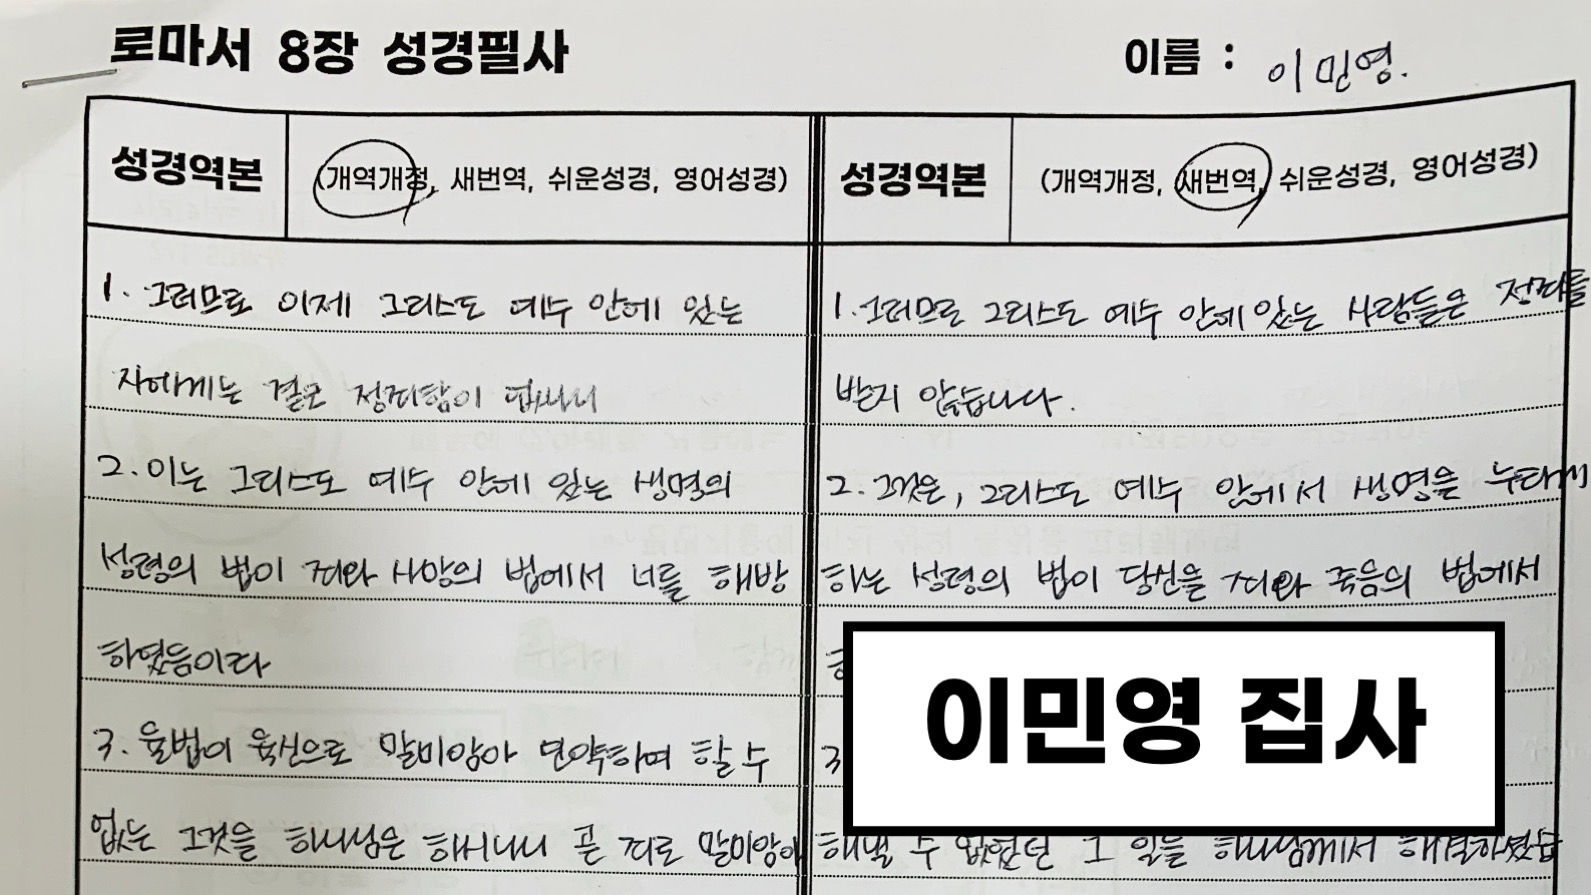 로마서 8장 성경필사
이름 : 이민영.
성경역본
(개역개정, 새번역, 쉬운성경, 영어성경)
1. 그러므로 이제 그리스도 예수 안에 있는
자에게는 결코 정죄함이 없나니
2. 이는 그리스도 예수 안에 있는 생명의
성령의 법이 죄와 사망의 법에서 너를 해방
하였음이라
3. 율법이 육신으로 말미암아 연약하여 할 수
없는 그것을 하나님은 하시나니 곧 죄로 말미암아
성경역본
(개역개정, 새번역, 쉬운성경, 영어성경)
1. 그러므로 그리스도 예수 안에 있는 사람들은 정죄를
받지 않습니다.
2. 그것은, 그리스도 예수 안에서 생명을 누리게
하는 성령의 법이 당신을 죄와 죽음의 법에서
3
해낼 수 없었던 그 일을 하나님께서 해결하셨습
이민영 집사